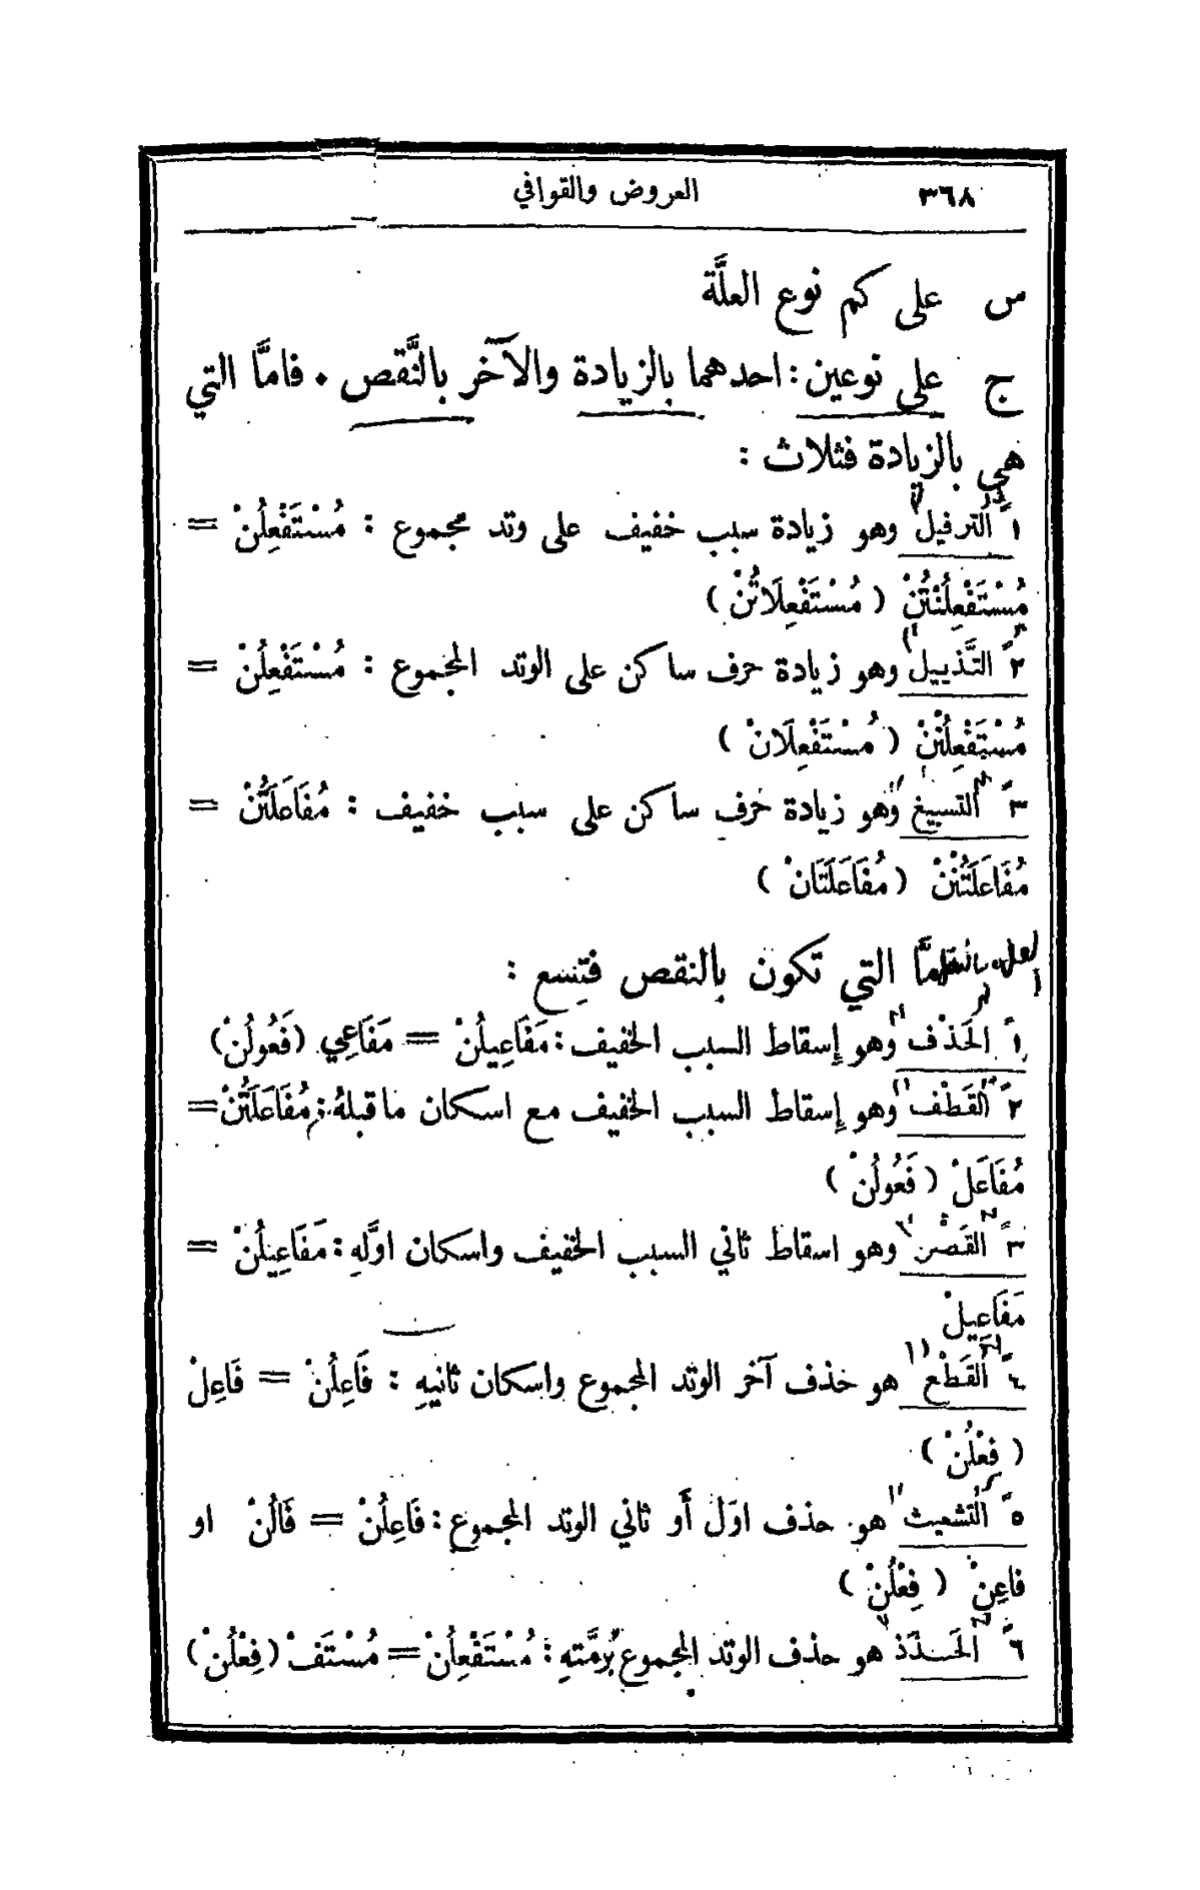 ٣٦٨ العروض والقوافي
س على كم نوع العلَّة
ج على نوعين : احدهما بالزيادة والآخر بالنَّقص . فامَّا التي
هي بالزيادة فثلاث :
١ً الترفيل وهو زيادة سبب خفيف على وتد مجموع : مُسْتَفْعِلُنْ =
مُسْتَفْعِلُنْتُنْ ( مُسْتَفْعِلَاتُنْ )
٢ً التَّذييل وهو زيادة حرف ساكن على الوتد المجموع : مُسْتَفْعِلُنْ =
مُسْتَفْعِلُنْنْ ( مُسْتَفْعِلَانْ )
٣ً التسبيغ وهو زيادة حرف ساكن على سبب خفيف : مُفَاعَلَتُنْ =
مُفَاعَلَتُنْنْ ( مُفَاعَلَتَانْ )
امَّا التي تكون بالنقص فتسع :
١ً الحَذْف وهو إسقاط السبب الخفيف : مَفَاعِيلُنْ = مَفَاعِي (فَعُولُنْ)
٢ً القَطْف وهو إسقاط السبب الخفيف مع اسكان ما قبلهُ : مُفَاعَلَتُنْ =
مُفَاعَلْ ( فَعُولُنْ )
٣ً القَصْر وهو اسقاط ثاني السبب الخفيف واسكان اوَّلهِ : مَفَاعِيلُنْ =
مَفَاعِيلْ
٤ً القَطْع هو حذف آخر الوتد المجموع واسكان ثانيهِ : فَاعِلُنْ = فَاعِلْ
( فِعْلُنْ )
٥ً التشعيث هو حذف اوّل أَو ثاني الوتد المجموع : فَاعِلُنْ = فَالُنْ او
فاعِنْ ( فِعْلُنْ )
٦ً الحَذَذ هو حذف الوتد المجموع بُرمَّتهِ : مُسْتَفْعِلُنْ = مُسْتَفْ (فِعْلُنْ)